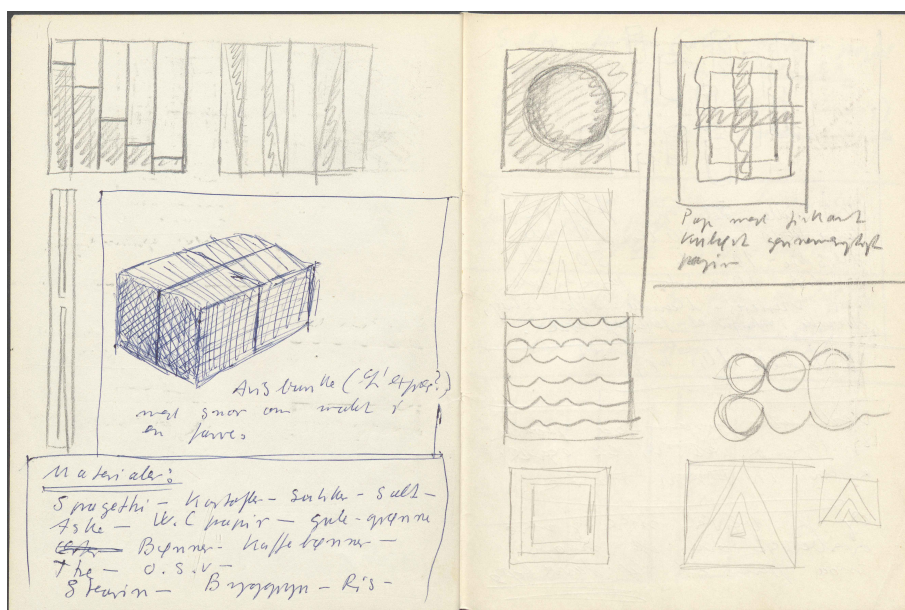 Avisbunke (L'express?)
med snor om malet i
en farve.
Materialer:
Spagethi – Kartofler – Sukker – Salt –
Aske – W.C papir – gule – grønne
Bønner – Kaffebønner –
The – O.S.V –
Stearin – Byggryn – Ris –
Pap med firkant
gennemsigtigt
papir